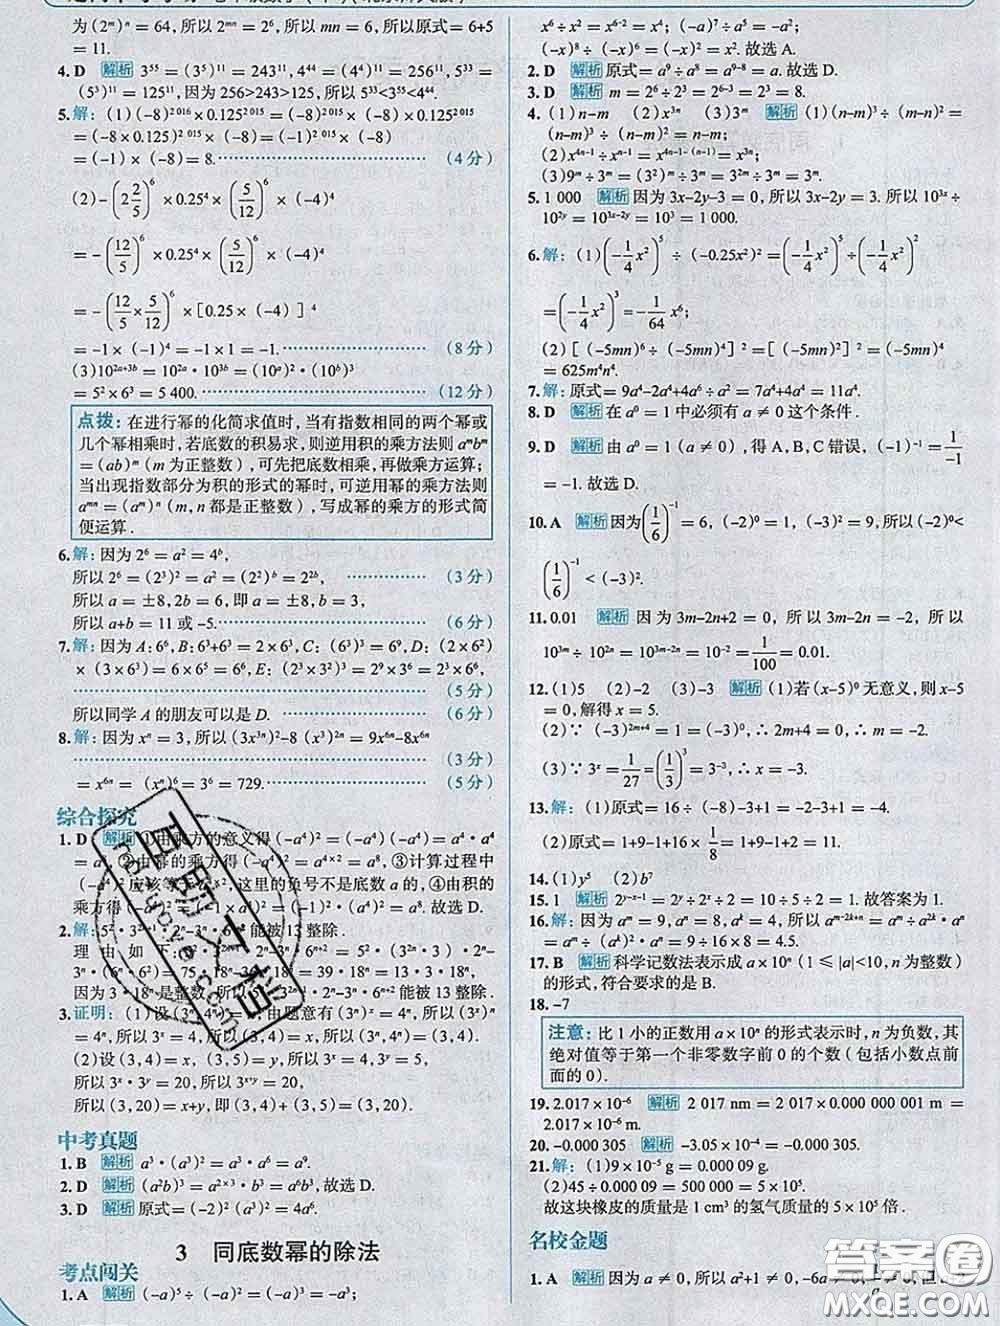 为(2^m)^n=64,所以2^{mn}=2^6,所以mn=6,所以原式=6+5
=11.
4.D 解析 3^{55}=(3^5)^{11}=243^{11},4^{44}=(4^4)^{11}=256^{11},5^{33}=
(5^3)^{11}=125^{11},因为256>243>125,所以5^{33}<3^{55}<4^{44}.
5.解:(1)(-8)^{2 016}×0.125^{2 015}=(-8)^{2 015}×(-8)×0.125^{2 015}
=(-8×0.125)^{2 015}×(-8)=(-1)^{2 015}×(-8)
=(-1)×(-8)=8.……(4分)
(2)-(2 2/5)^6×0.25^4×(5/12)^6×(-4)^4
=-(12/5)^6×0.25^4×(5/12)^6×(-4)^4
=-(12/5×5/12)^6×[0.25×(-4)]^4
=-1×(-1)^4=-1×1=-1.……(8分)
(3)10^{2a+3b}=10^{2a}·10^{3b}=(10^a)^2·(10^b)^3
=5^2×6^3=5 400.……(12分)
点拨:在进行幂的化简求值时,当有指数相同的两个幂或
几个幂相乘时,若底数的积易求,则逆用积的乘方法则a^m b^m
=(ab)^m(m为正整数),可先把底数相乘,再做乘方运算;
当出现指数部分为积的形式的幂时,可逆用幂的乘方法则
a^{mn}=(a^m)^n(m,n都是正整数),写成幂的乘方的形式简
便运算.
6.解:因为2^6=a^2=4^b,
所以2^6=(2^3)^2=a^2=(2^2)^b=2^{2b},……(3分)
所以a=±8,2b=6,即a=±8,b=3,
所以a+b=11或-5.……(6分)
7.解:因为A:6^6,B:6^3+6^3=2×6^3,C:(6^3)^3=6^9,D:(2×6^2)
×(3×6^3)=6×6^5=6^6,E:(2^2×3^2)^3=2^9×3^6=2^3×6^6,
……(5分)
所以同学A的朋友可以是D.……(6分)
8.解:因为x^n=3,所以(3x^{3n})^2-8(x^3)^{2n}=9x^{6n}-8x^{6n}
……(3分)
=x^{6n}=(x^n)^6=3^6=729.……(5分)
综合探究
1.D 解析 ①由乘方的意义得(-a^4)^2=(-a^4)(-a^4)=a^4·a^4
②由幂的乘方得(-a^4)^2=a^{4×2}=a^8,③计算过程中
这里的负号不是底数a的,④由积的
乘方得 a^8.故选D.
2. 能被13整除.
理由如下:
因为3·18^n是整数,所以 能被13整除.
3.证明:(1)设
(2)设(3,4)=x,
所以3^x·3^y=3^{x+y}=20,
所以(3,20)=x+y,即(3,4)+(3,5)=(3,20).
中考真题
1.B 解析 a^3·(a^3)^2=a^3·a^6=a^9.
2.D 解析 (a^2b)^3=a^{2×3}·b^3=a^6b^3,故选D.
3.D 解析 原式=(-2)^2(a^3)^2=4a^6.
3 同底数幂的除法
考点闯关
1.A 解析 (-a)^5÷(-a)^2=(-a)^3=-a^3;
x^6÷x^2=x^{6-2}=x^4;(-a)^7÷a^5=-a^2;
(-x)^8÷(-x)^6=(-x)^2=x^2.故选A.
2.D 解析 原式=a^9÷a^8=a^{9-8}=a.故选D.
3.D 解析 m=2^6÷2^3=2^{6-3}=2^3=8.
4.(1)(n-m) (2)x^{3n} (3)3^m 解析 (1)(n-m)^3÷(m-n)^2=
(n-m)^3÷(n-m)^2=n-m;
(2)x^{4n-1}÷x^{n-1}=x^{4n-1-(n-1)}=x^{3n};
(3)9^m÷3^m=(3^2)^m÷3^m=3^{2m}÷3^m=3^m.
5.1 000 解析 因为3x-2y-3=0,所以3x-2y=3.所以10^{3x}÷
10^{2y}=10^{3x-2y}=10^3=1 000.
6.解:(1)(-1/4x^2)^5÷(-0.25x^2)^2=(-1/4x^2)^5÷(-1/4x^2)^2
=(-1/4x^2)^3=-1/64x^6;
(2)[(-5mn)^6÷(-5mn)^4]^2=[(-5mn)^2]^2=(-5mn)^4
=625m^4n^4.
7.解:原式=9a^4-2a^4+4a^6÷a^2=7a^4+4a^4=11a^4.
8.D 解析 在a^0=1中必须有a≠0这个条件.
9.D 解析 由a^0=1(a≠0),得A、B、C错误,(-1)^{-1}=1/-1
=-1.故选D.
10.A 解析 因为(1/6)^{-1}=6,(-2)^0=1,(-3)^2=9,所以(-2)^0<
(1/6)^{-1}<(-3)^2.
11.0.01 解析 因为3m-2n+2=0,所以3m-2n=-2,所以
10^{3m}÷10^{2n}=10^{3m-2n}=10^{-2}=1/100=0.01.
12.(1)5 (2)-2 (3)-3 解析 (1)若(x-5)^0无意义,则x-5
=0,解得x=5.
(2)∵(-3)^{2m+4}=1,∴2m+4=0,∴m=-2.
(3)∵3^x=1/27=(1/3)^3=3^{-3},∴x=-3.
13.解:(1)原式=16÷(-8)-3+1=-2-3+1=-4.
(2)原式=1+9-1+16×1/8=1+9-1+2=11.
14.(1)y^5 (2)b^7
15.1 解析 2^{y-x-1}=2^y÷2^x÷2=10÷5÷2=1.故答案为1.
16.解:因为a^m=9,a^n=8,a^k=4,所以a^{m-2k+n}=a^m÷a^{2k}·a^n
=a^m÷(a^k)^2·a^n=9÷16×8=4.5.
17.B 解析 科学记数法表示成a×10^n(1≤|a|<10,n为整数)
的形式,符合要求的是B.
18.-7
注意:比1小的正数用a×10^n的形式表示时,n为负数,其
绝对值等于第一个非零数字前0的个数(包括小数点前
面的0).
19.2.017×10^{-6} 解析 2 017 nm=2 017×0.000 000 001 m=
2.017×10^{-6} m.
20.-0.000 305 解析 -3.05×10^{-4}=-0.000 305.
21.解:(1)9×10^{-5} g=0.000 09 g.
(2)45÷0.000 09=500 000=5×10^5,
故这块橡皮的质量是1 cm^3的氢气质量的5×10^5倍.
名校金题
1.A 解析 因为a≠0,所以a^2+1≠0,-6a≠0,
答案圈
MXQE.COM